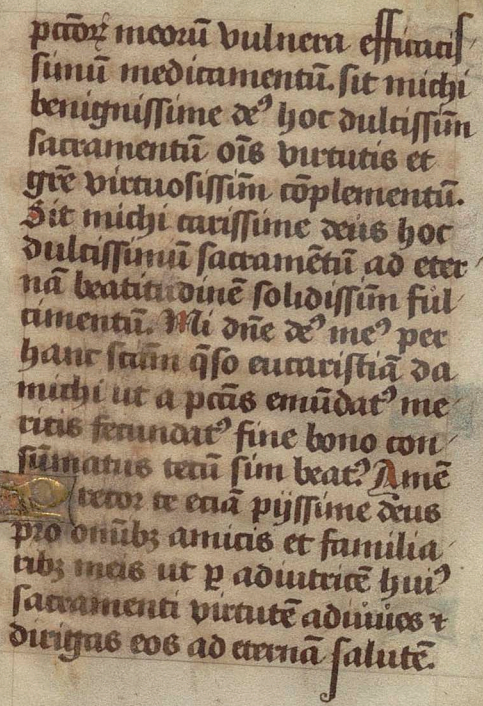 pctōꝝ meorū vulnera efficacis
simū medicamentū. sit michi
benignissime deꝰ hoc dulcissim̄
sacramentū oīs virtutis et
grē virtuosissim̄ cōplementū.
Sit michi carissime deus hoc
dulcissimū sacramētū ad eter
nā beatitudinē solidissim̄ ful
cimentū. Mi dn̄e deꝰ meꝰ per
hanc sctām q̄so eucaristiā da
michi ut a pctīs emūdatꝰ me
ritis fecundatꝰ fine bono con
sūmatus tecū sim beatꝰ Amē
recor te eciā pijssime deus
pro om̄ibꝫ amicis et familia
ribꝫ meis ut ꝑ adiutricē huiꝰ
sacramenti virtutē adiuues ⁊
dirigas eos ad eternā salutē.